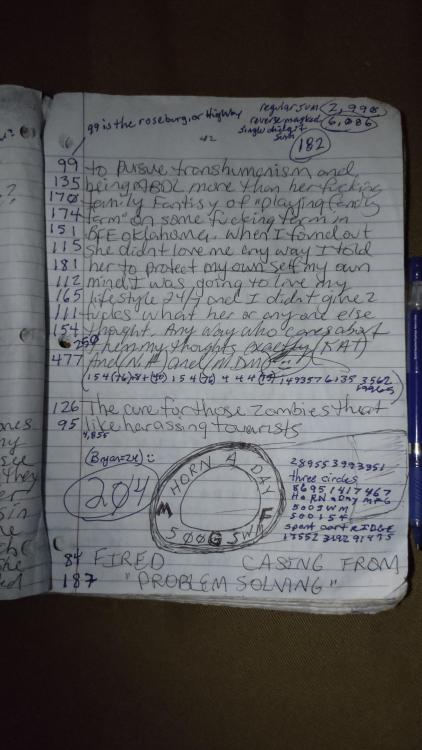 99 is the roseburg, or Highway
regular sum 2,998
reverse masked 6,086
single digit sum
182
99 to pursue transhumanism and
135 being ABDL more than her fucking
170 family Fantisy of "playing family
174 farm" on some fucking farm in
151 BFE oklahoma. When I found out
115 she didnt love me any way I told
181 her to protect my own self my own
112 mind I was going to live my
165 lifestyle 24/7 and I didnt give 2
111 fucks what her or any one else
154 thought. Any way who cares about
250 them my thoughts exactly (KAT)
477 And (N.A) and (M.DM)
126 The cure for those Zombies that
95 like harassing towarists
4,855
(Bryan=24)
204
HORN A DAY
M F
500G SWM
289553993351
three circles
HORN A DAY MFG
500JWM
500154
84 FIRED CASING FROM
187 "PROBLEM SOLVING"